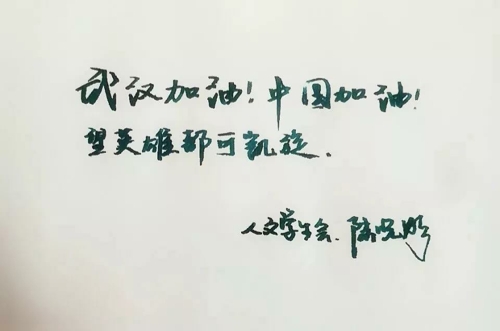 武汉加油!中国加油!
望英雄都可凯旋.
人文学生会.陈